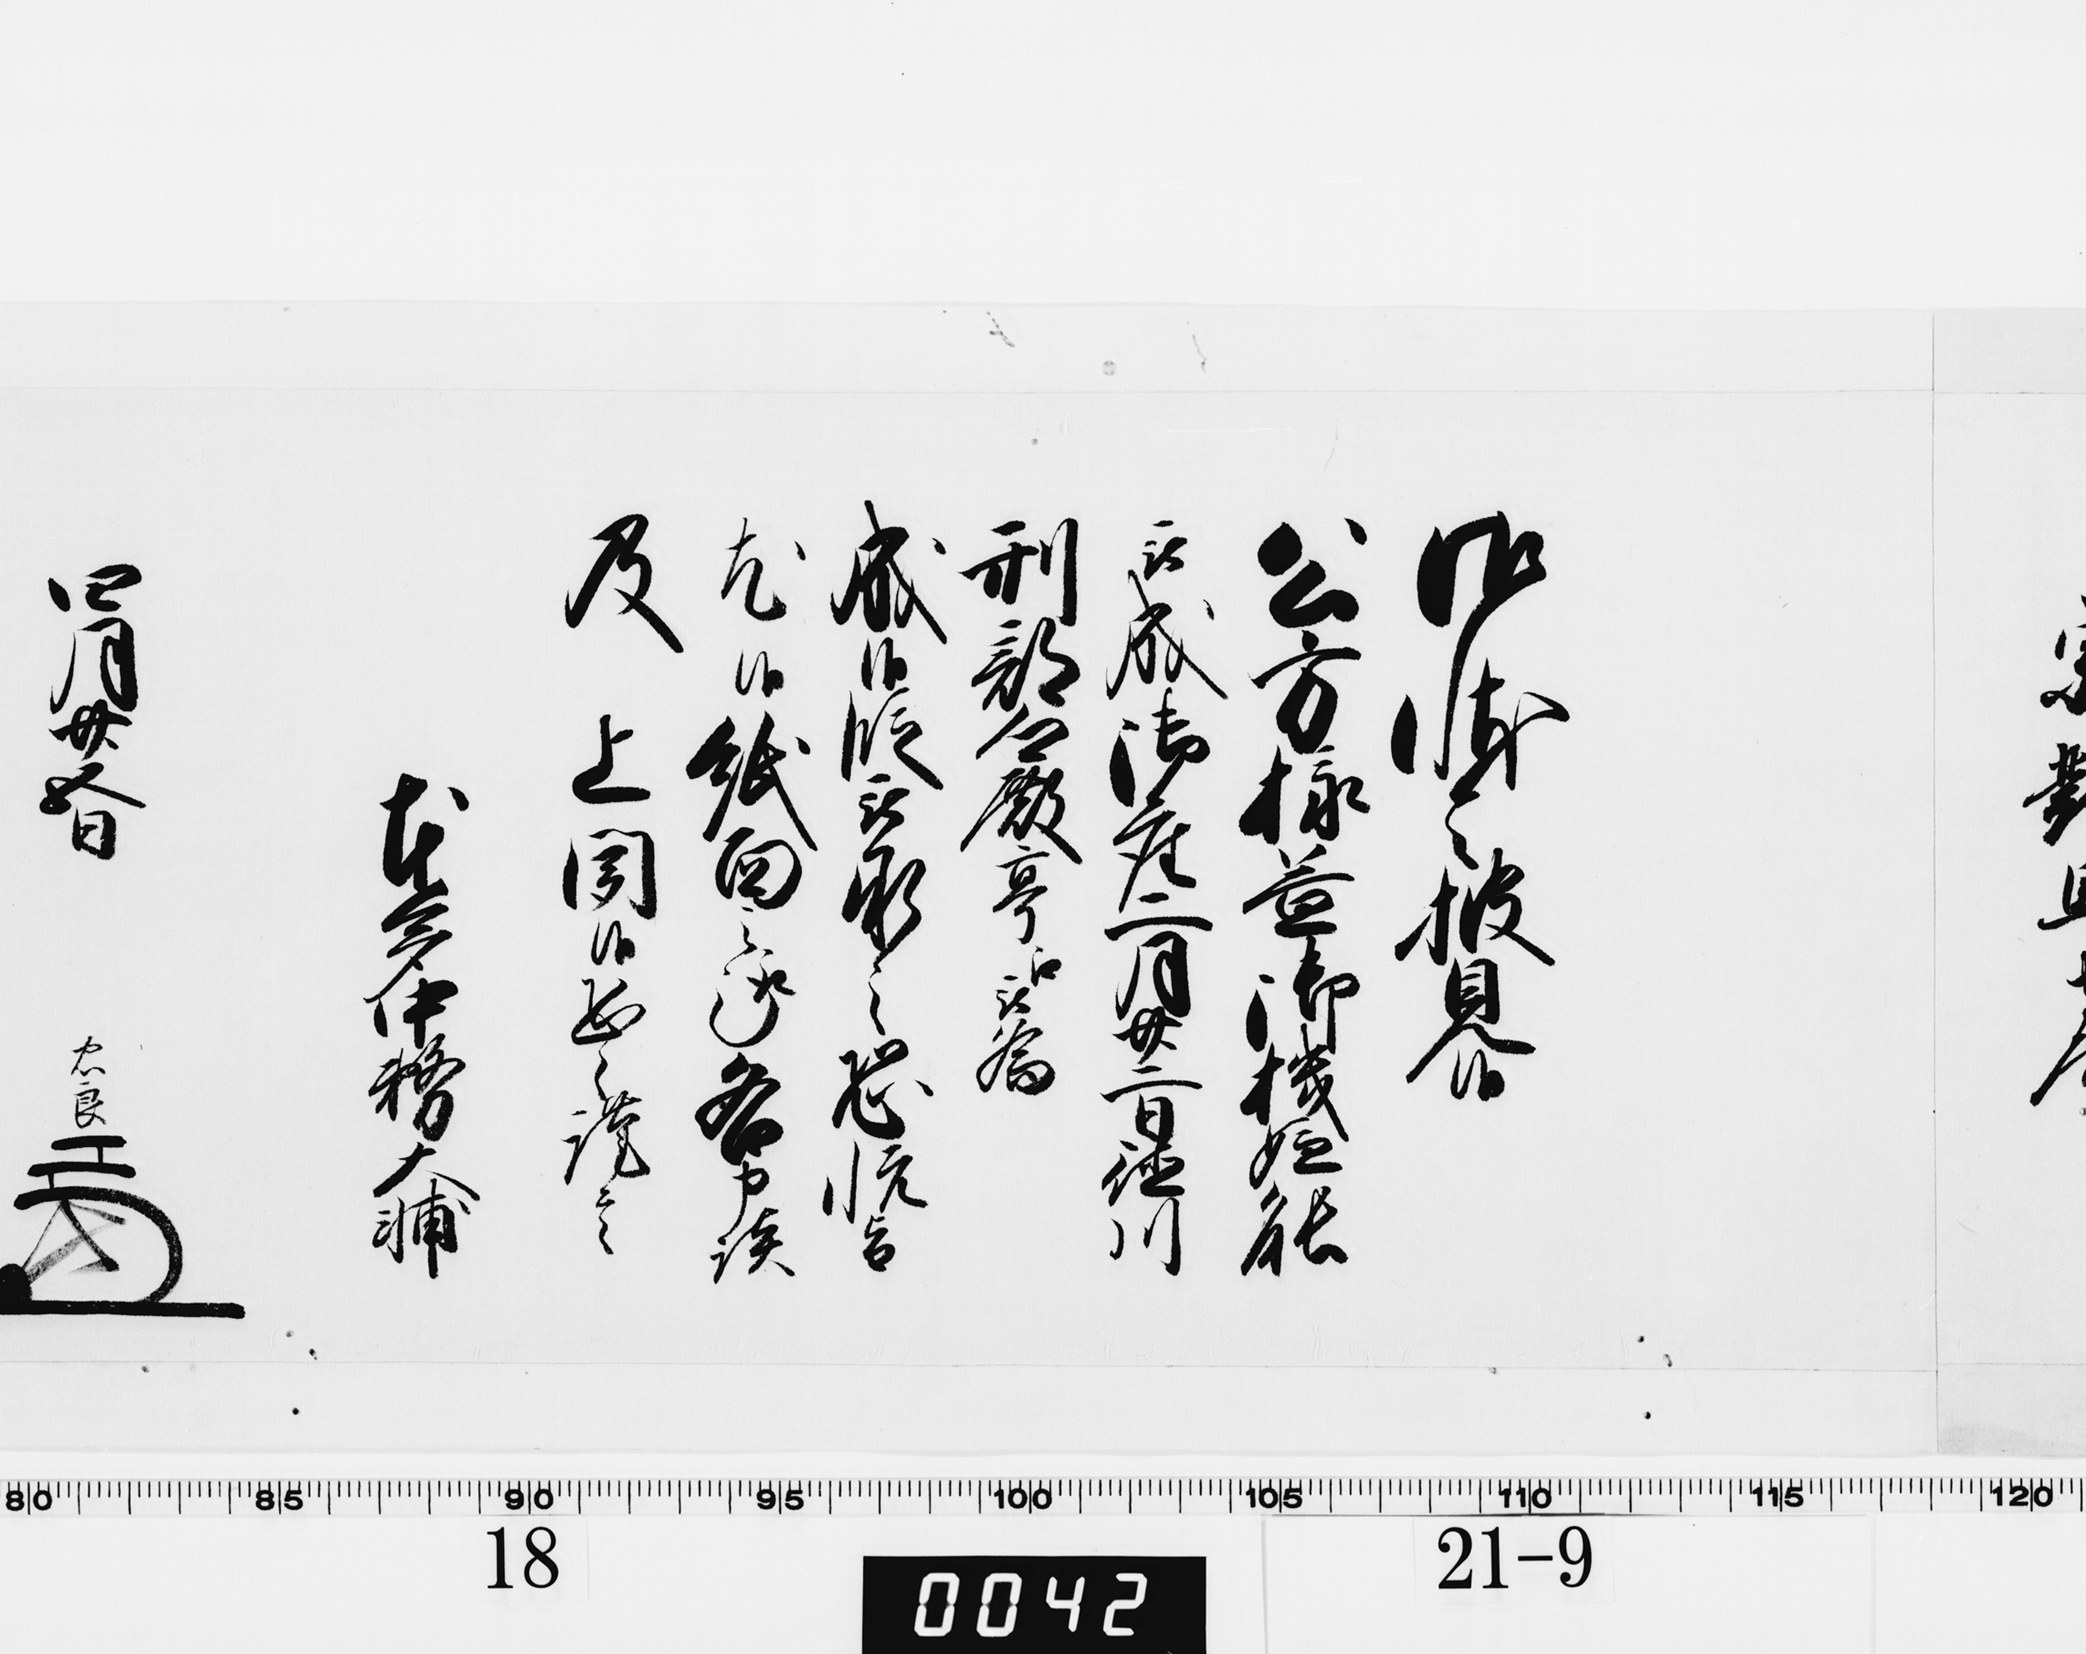 御状令披見候
公方様益御機嫌能
被成御座二月廿二日徳川
刑部卿殿亭江被為
成候段被承之恐悦旨
尤候紙面之趣各申談
及 上聞候恐々謹言
本多中務大輔
四月廿五日
忠良
18
0042
21-9
80 85 90 95 100 105 110 115 120